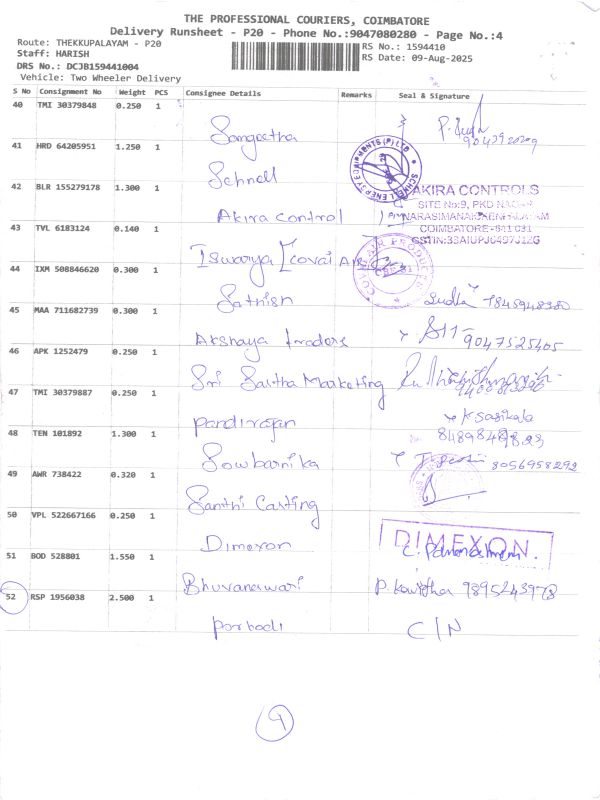 THE PROFESSIONAL COURIERS, COIMBATORE
Delivery Runsheet - P20 - Phone No.:9047080280 - Page No.:4
Route: THEKKUPALAYAM - P20
RS No.: 1594410
Staff: HARISH
RS Date: 09-Aug-2025
DRS No.: DCJB159441004
Vehicle: Two Wheeler Delivery
S No Consignment No Weight PCS Consignee Details Remarks Seal & Signature
40 TMI 30379848 0.250 1
Sangeetha
41 HRD 64205951 1.250 1
Schnell
SCHNELL ENERGY EQUIPMENTS (P) LTD
42 BLR 155279178 1.300 1
Akira Control
AKIRA CONTROLS
SITE No:9, PKD NAGAR
COIMBATORE - 641 031
43 TVL 6183124 0.140 1
Iswarya [covai Air
44 IXM 508846620 0.300 1
Sathish
45 MAA 711682739 0.300 1
Akshaya traders
9047525405
46 APK 1252479 0.250 1
Sri Saitha Marketing
47 TMI 30379887 0.250 1
Pandirajan
K Sasikala
48 TEN 101892 1.300 1
Sowbarnika
8056958292
49 AWR 738422 0.320 1
Santhi Casting
50 VPL 522667166 0.250 1
Dimexon
DIMEXON
51 BOD 528801 1.550 1
Bhuvanawari
P. Kavitha 9895243978
52 RSP 1956038 2.500 1
Parbadi
C/N
9